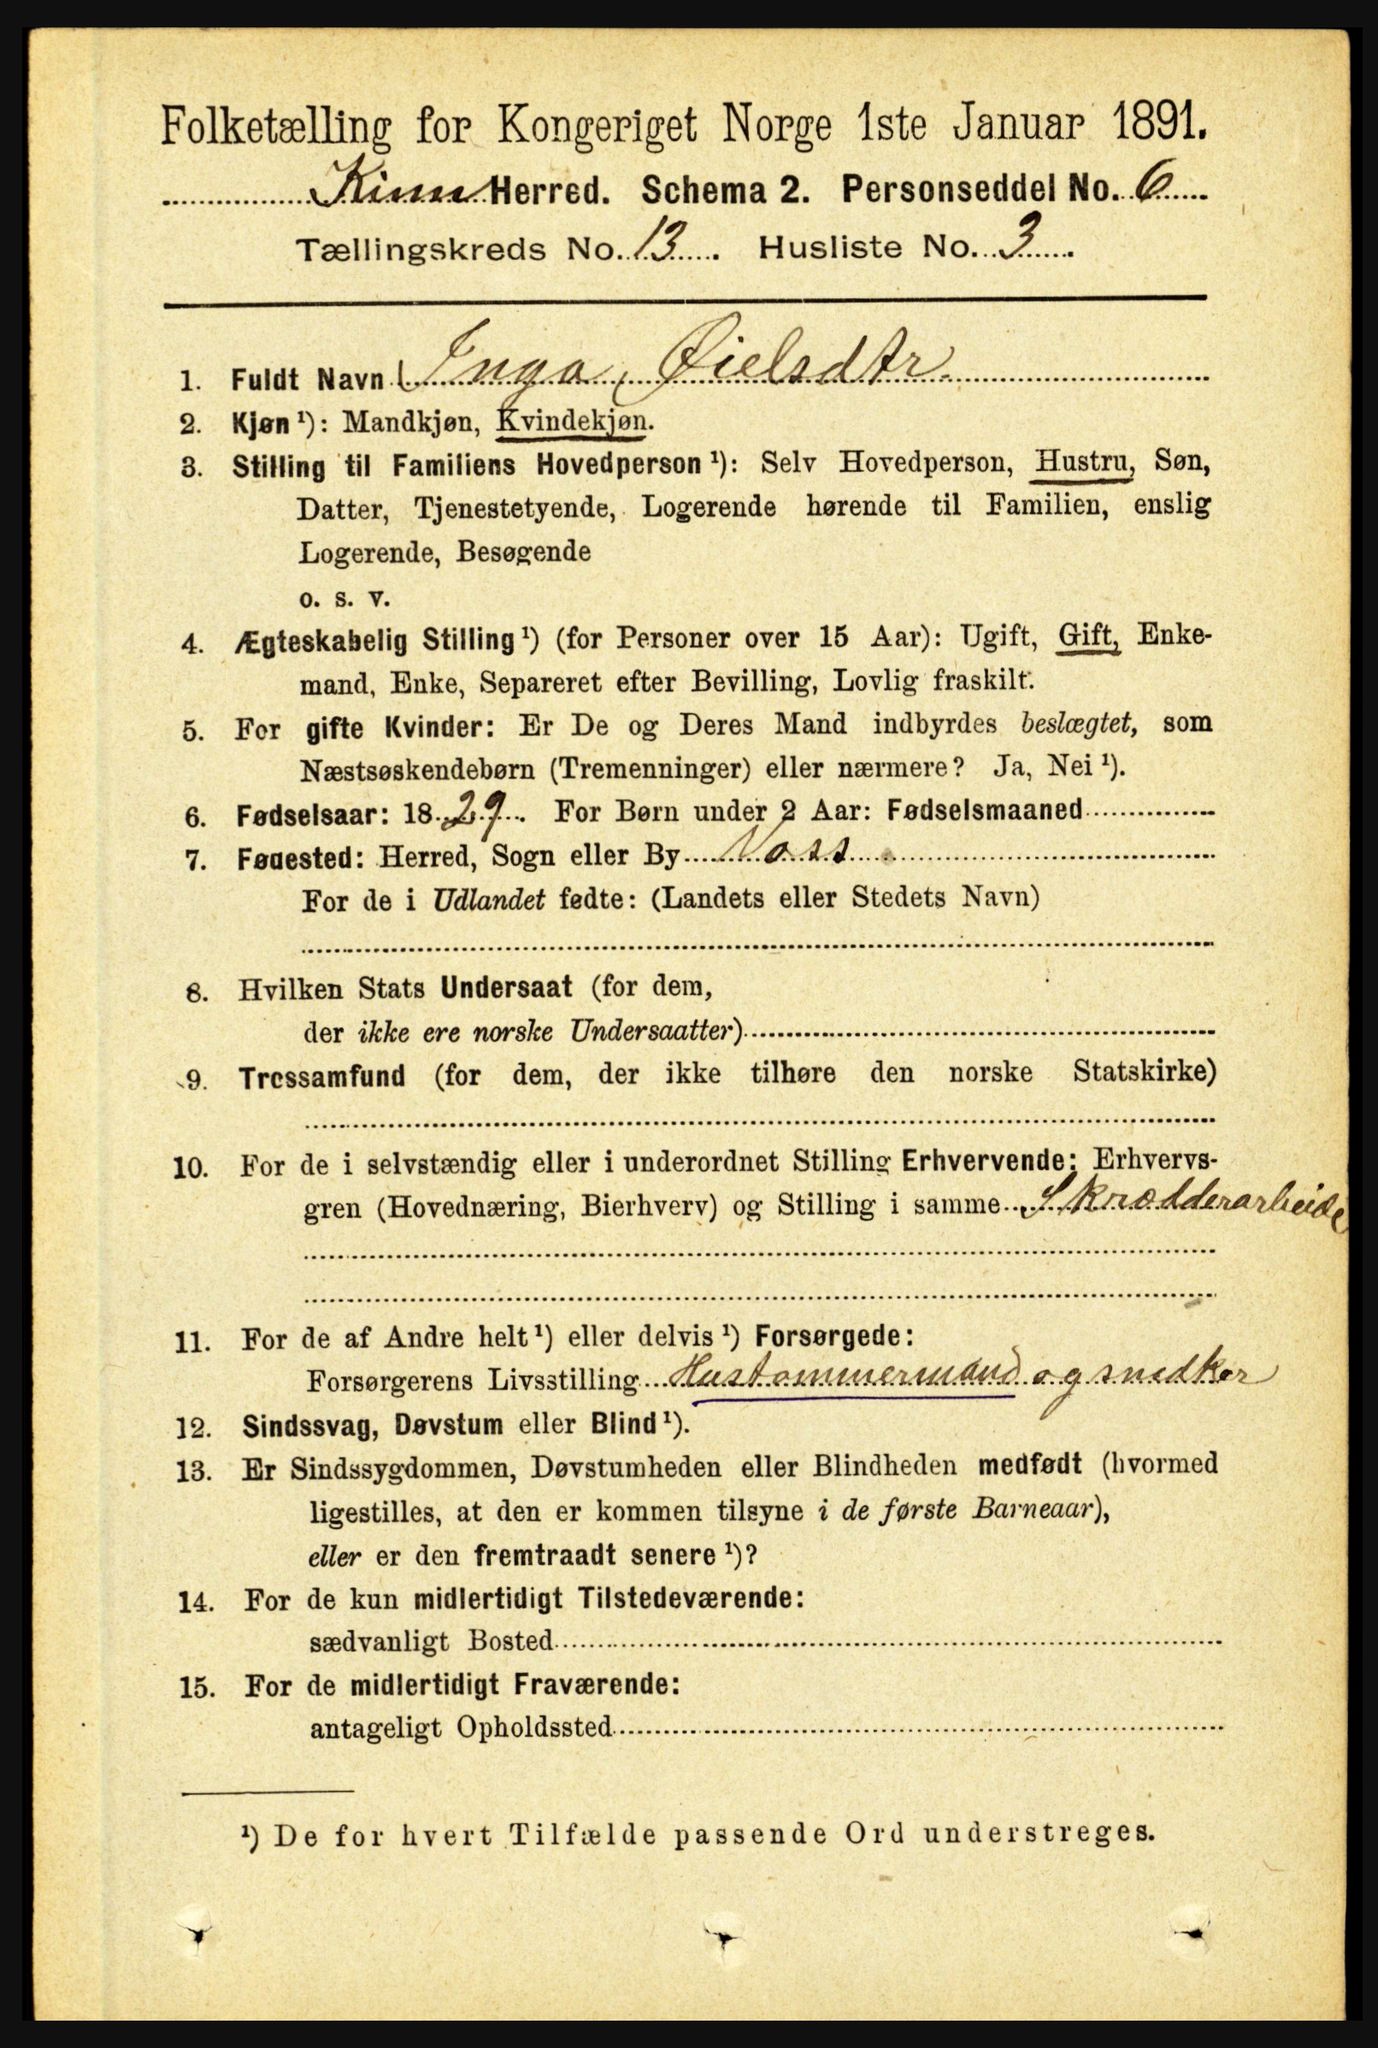 Folketælling for Kongeriget Norge 1ste Januar 1891.
Kinn Herred. Schema 2. Personseddel No. 6
Tællingskreds No. 13. Husliste No. 3
1. Fuldt Navn Inga Øielsdtr
2. Kjøn ¹): Mandkjøn, Kvindekjøn.
3. Stilling til Familiens Hovedperson ¹): Selv Hovedperson, Hustru, Søn,
Datter, Tjenestetyende, Logerende hørende til Familien, enslig
Logerende, Besøgende
o. s. v.
4. Ægteskabelig Stilling ¹) (for Personer over 15 Aar): Ugift, Gift, Enke-
mand, Enke, Separeret efter Bevilling, Lovlig fraskilt.
5. For gifte Kvinder: Er De og Deres Mand indbyrdes beslægtet, som
Næstsøskendebørn (Tremenninger) eller nærmere? Ja, Nei ¹).
6. Fødselsaar: 1829. For Børn under 2 Aar: Fødselsmaaned
7. Fødested: Herred, Sogn eller By Voss
For de i Udlandet fødte: (Landets eller Stedets Navn)
8. Hvilken Stats Undersaat (for dem,
der ikke ere norske Undersaatter)
9. Trossamfund (for dem, der ikke tilhøre den norske Statskirke)
10. For de i selvstændig eller i underordnet Stilling Erhvervende: Erhvervs-
gren (Hovednæring, Bierhverv) og Stilling i samme Skrædderarbeide
11. For de af Andre helt ¹) eller delvis ¹) Forsørgede:
Forsørgerens Livsstilling Hustømmermand og snedker
12. Sindssvag, Døvstum eller Blind ¹).
13. Er Sindssygdommen, Døvstumheden eller Blindheden medfødt (hvormed
ligestilles, at den er kommen tilsyne i de første Barneaar),
eller er den fremtraadt senere ¹)?
14. For de kun midlertidigt Tilstedeværende:
sædvanligt Bosted
15. For de midlertidigt Fraværende:
antageligt Opholdssted
¹) De for hvert Tilfælde passende Ord understreges.